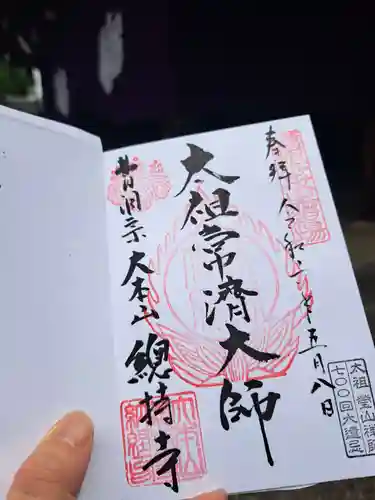 奉拝 令和六年五月八日
太祖常済大師
曹洞宗 大本山 總持寺
太祖瑩山禅師
七〇〇回大遠忌